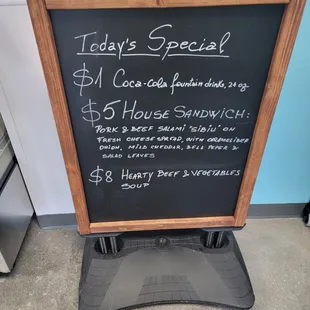 Today's Special
$1 Coca-Cola fountain drinks, 24 oz
$5 House Sandwich:
Pork & Beef Salami "Sibiu" on
fresh cheese spread with caramelized
onion, mild cheddar, bell peper &
salad leaves
$8 Hearty Beef & Vegetables
Soup